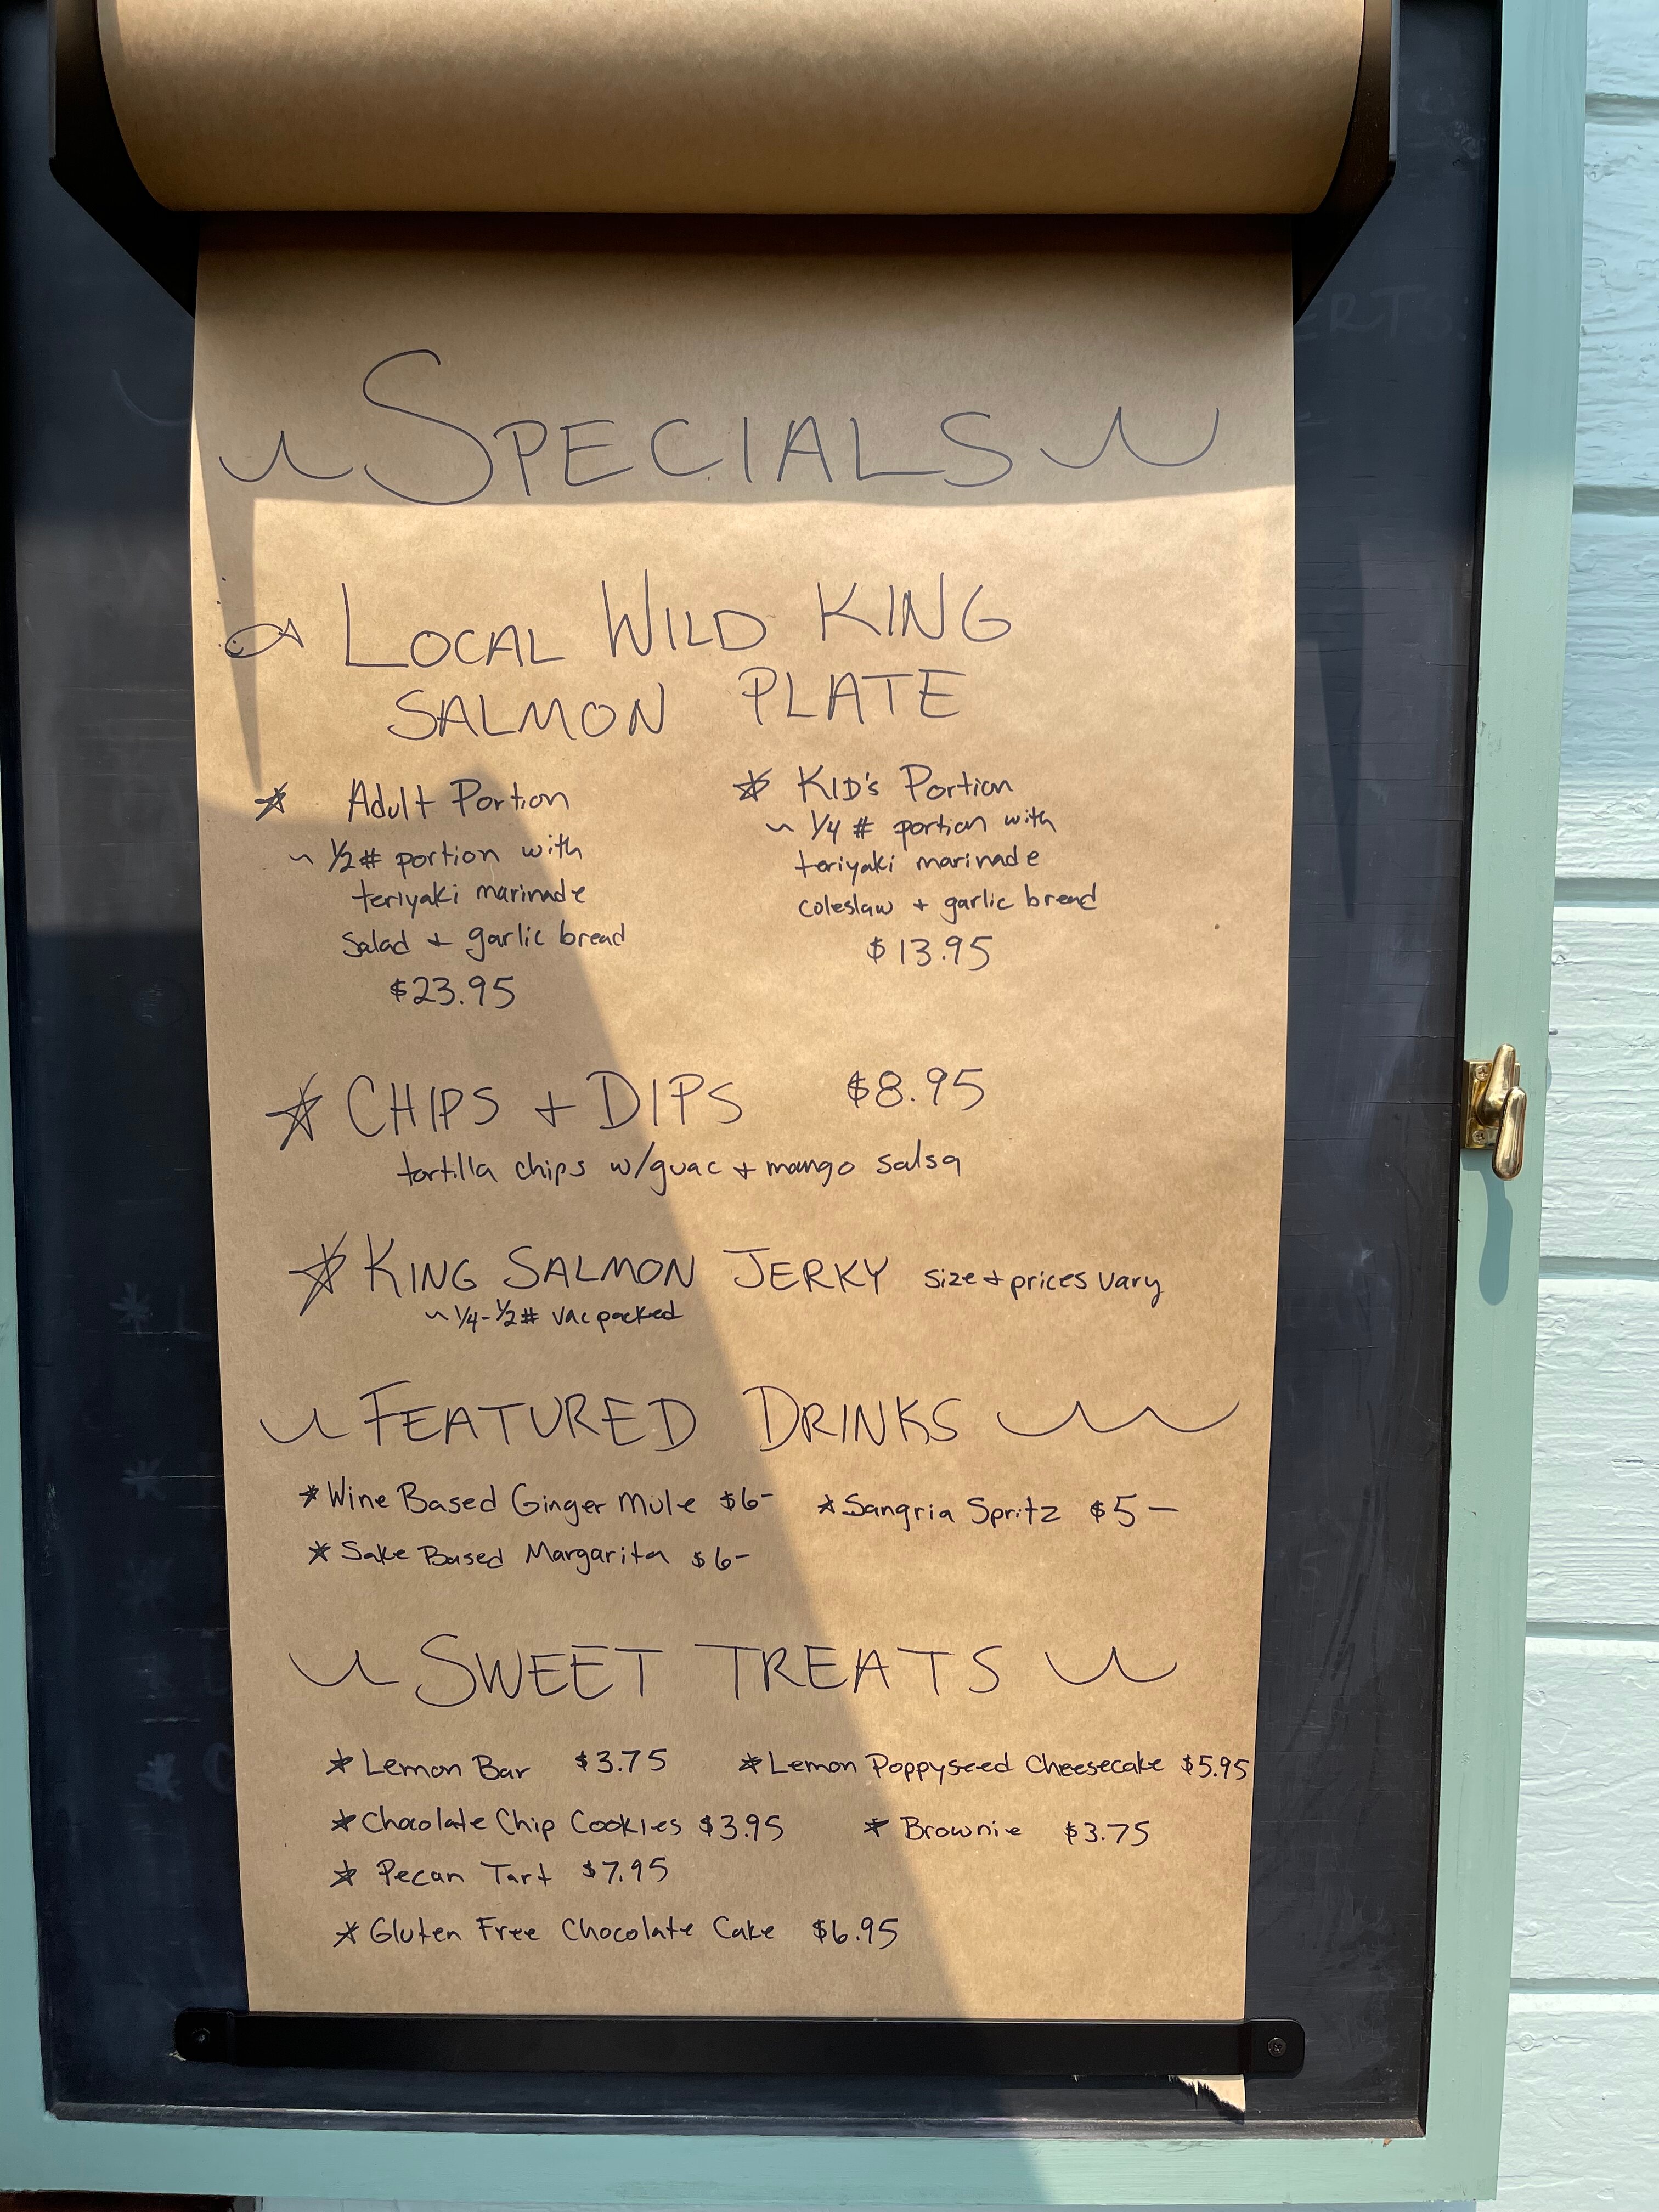 SPECIALS
LOCAL WILD KING
SALMON PLATE
Adult Portion
~ 1/2 # portion with
teriyaki marinade
salad + garlic bread
$23.95
KID's Portion
~ 1/4 # portion with
teriyaki marinade
coleslaw + garlic bread
$13.95
CHIPS + DIPS $8.95
tortilla chips w/guac + mango salsa
KING SALMON JERKY size + prices vary
~ 1/4-1/2# vac packed
FEATURED DRINKS
*Wine Based Ginger Mule $6- *Sangria Spritz $5-
*Sake Based Margarita $6-
SWEET TREATS
*Lemon Bar $3.75 *Lemon Poppyseed Cheesecake $5.95
*Chocolate Chip Cookies $3.95 *Brownie $3.75
*Pecan Tart $7.95
*Gluten Free Chocolate Cake $6.95